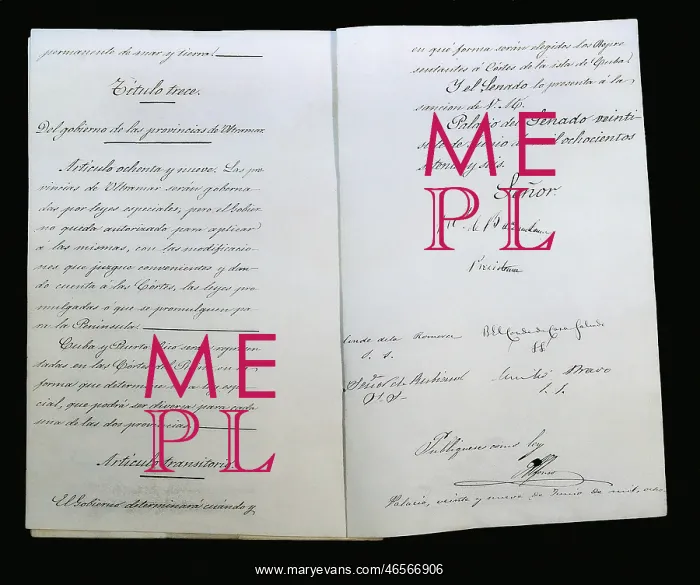 permanente de mar y tierra.
Título trece.
Del gobierno de las provincias de Ultramar.
Artículo ochenta y nueve. Las pro
vincias de Ultramar serán goberna-
das por leyes especiales; pero el Gobier
no queda autorizado para aplicar
á las mismas, con las modificacio-
nes que juzgue convenientes y dan-
do cuenta á las Córtes, las leyes pro
mulgadas ó que se promulguen pa
ra la Península.
Cuba y Puerto Rico serán represen
tadas en las Córtes del Reino en la
forma que determine una ley espe-
cial, que podrá ser diversa para cada
una de las dos provincias.
Artículo transitorio.
El Gobierno determinará cuándo y
en qué forma serán elegidos los Repre
sentantes á Córtes de la isla de Cuba.
Y el Senado lo presenta á la
sancion de V. M.
Palacio del Senado veinti-
de Junio de mil ochocientos
setenta y seis.
Señor.
Presidente
Conde de la Romera
El Conde de Casa Galindo
S. S.
S. S.
Señor de Rubianes
Bravo
S. S.
S. S.
Publíquese como ley
Alfonso
Palacio, veinte y nueve de Junio de mil, ocho
ME
PL
ME
PL
www.maryevans.com/46566906